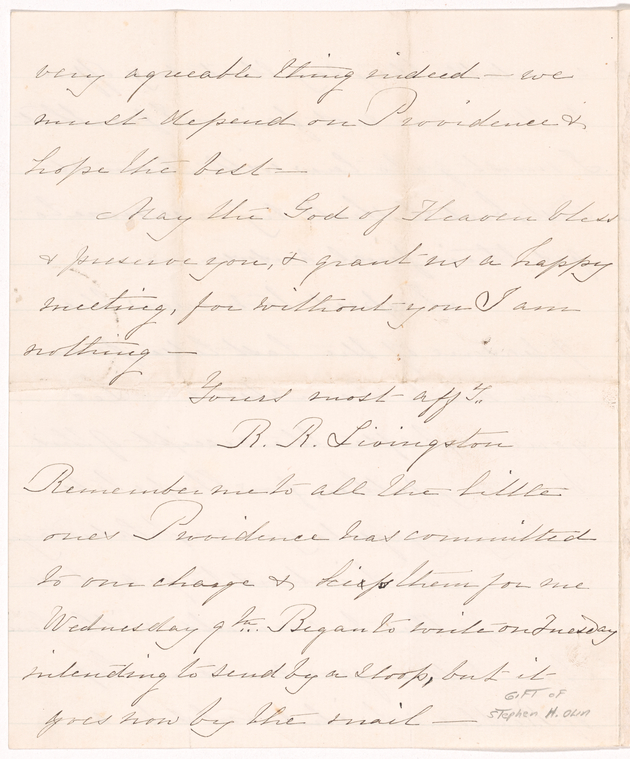 very agreeable thing indeed — we
must depend on Providence &
hope the best —
May the God of Heaven bless
& preserve you, & grant us a happy
meeting, for without you I am
nothing —
Yours most aff.y.
R. R. Livingston
Remember me to all the little
ones Providence has committed
to our charge & kiss them for me
Wednesday 9th.. Began to write on Tuesday
intending to send by a Sloop, but it
goes now by the mail —
GIFT OF
STEPHEN H. OLIN